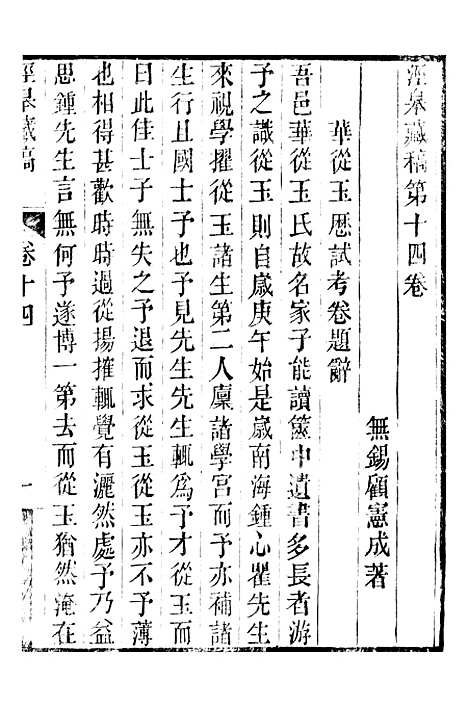 涇臯藏稿第十四卷
無錫顧憲成著
華從玉歷試考卷題辭
吾邑華從玉氏故名家子能讀篋中遺書多長者游
予之識從玉則自歲庚午始是歲南海鍾心瞿先生
來視學擢從玉諸生第二人廩諸學宮而予亦補諸
生行且國士予也予見先生先生輒爲予才從玉而
曰此佳士子無失之予退而求從玉從玉亦不予薄
也相得甚歡時時過從揚搉輒覺有灑然處予乃益
思鍾先生言無何予遂博一第去而從玉猶然淹在
涇臯藏稿
卷十四
一